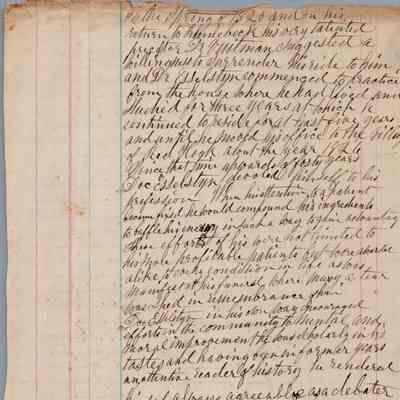 in the Spring of 1820 and on his
return to Kinnebeck his very talented
preceptor Dr Quitman suggested a
willingness to surrender his ride to him
and Dr Esselstyn commenced to practice
from the house where he had lived and
studied for three years at which he
continued to reside for at least five years
and until he moved his office to the village
of Red Hook about the year 1826
Since that time upwards of forty years
Doc Esselstyn devoted himself to his
profession When his attention to a patient
he would compound his ingredients
to baffle his enemy in such a way to gain advantage
These efforts of his were not limited to
his more profitable patients but were
alike to every condition in life as was
manifest at his funeral where many a tear
was shed in remembrance of him
Doc Esselstyn in his own way encouraged
efforts in the community to mental and
moral improvement He was scholarly in his
tastes and having been in former years
an attentive reader of history he rendered
himself always agreeable as a debater